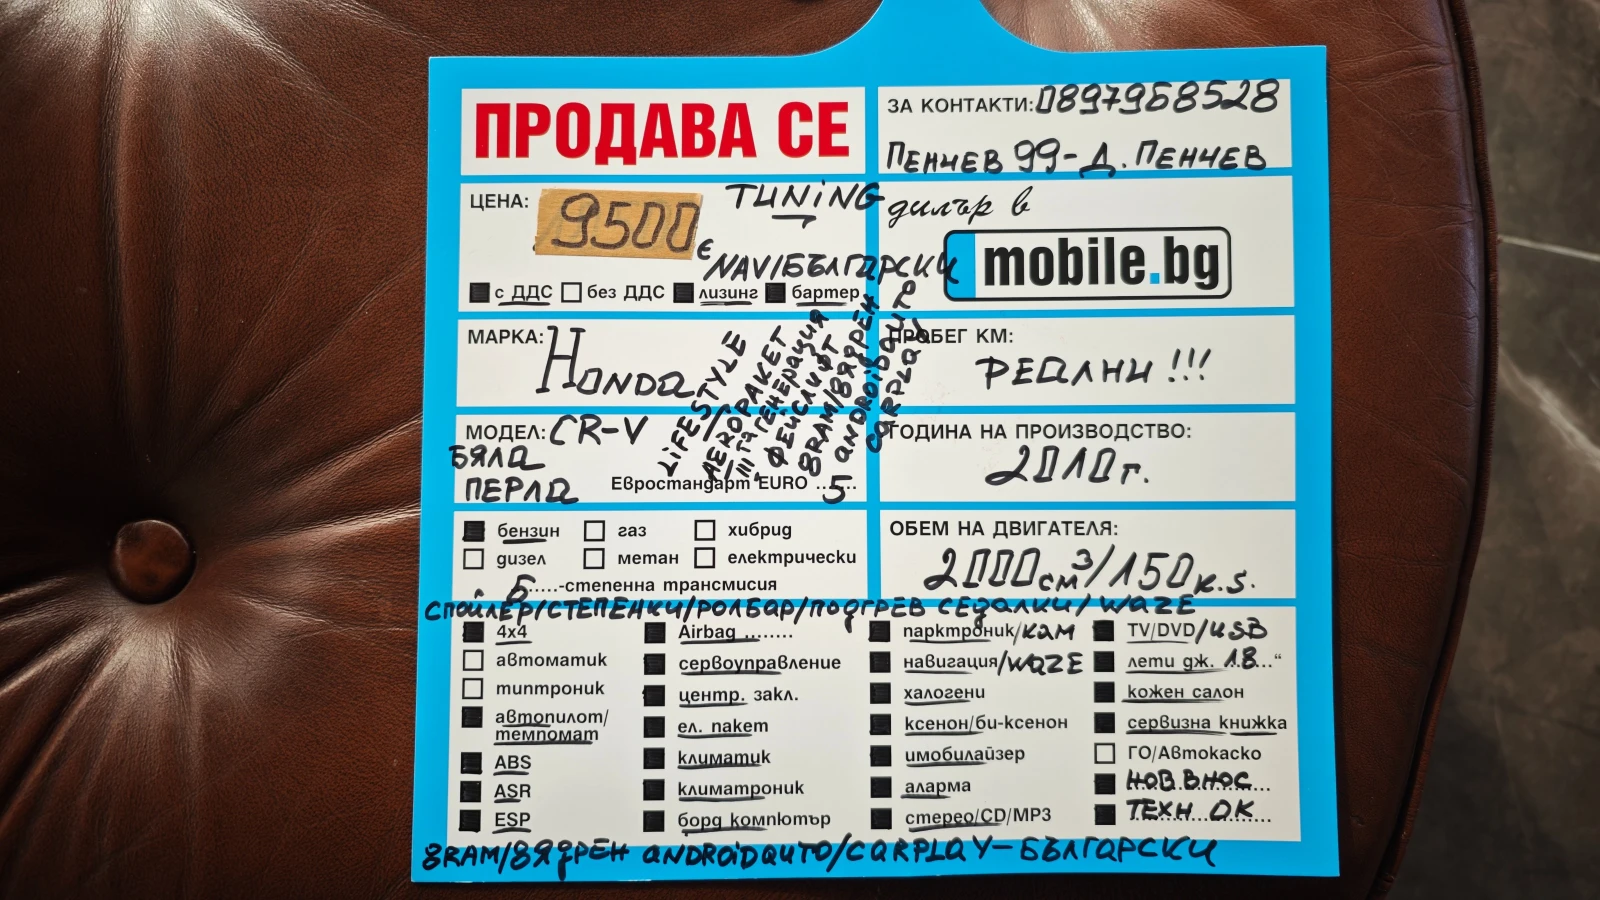 ПРОДАВА СЕ
ЗА КОНТАКТИ: 0897968528
ПЕНЧЕВ 99 - Д. ПЕНЧЕВ
ЦЕНА: 9500 €
TUNiNG
NAV/БЪЛГАРСКИ
с ДДС без ДДС лизинг бартер
дилър в
mobile.bg
МАРКА: HONDa
LiFESTYLE
AEROПАКЕТ
IIIта ГЕНЕРАЦИЯ
ФЕЙСЛИФТ
8RAM/8ЯДРЕН
aNDROiDaUTO
CaRPLaY
ПРОБЕГ КМ:
РЕАЛНИ !!!
МОДЕЛ: CR-V
БЯЛа
ПЕРЛа
Евростандарт EURO ..5....
ГОДИНА НА ПРОИЗВОДСТВО:
2010г.
бензин газ хибрид
дизел метан електрически
6.....-степенна трансмисия
ОБЕМ НА ДВИГАТЕЛЯ:
2000см³/150к.s.
СПОЙЛЕР/СТЕПЕНКИ/РОЛБАР/ПОДГРЕВ СЕДАЛКИ/WAZE
4x4
автоматик
типтроник
автопилот/
темпомат
ABS
ASR
ESP
Airbag ........
сервоуправление
центр. закл.
ел. пакет
климатик
климатроник
борд компютър
парктроник/КАМ
навигация/WAZE
халогени
ксенон/би-ксенон
имобилайзер
аларма
стерео/CD/MP3
TV/DVD/USB
лети дж. 18...“
кожен салон
сервизна книжка
ГО/Автокаско
НОВ ВНОС
ТЕХН. ОК
8RAM/8ЯДРЕН aNDROiDaUTO/CaRPLaY-БЪЛГАРСКИ